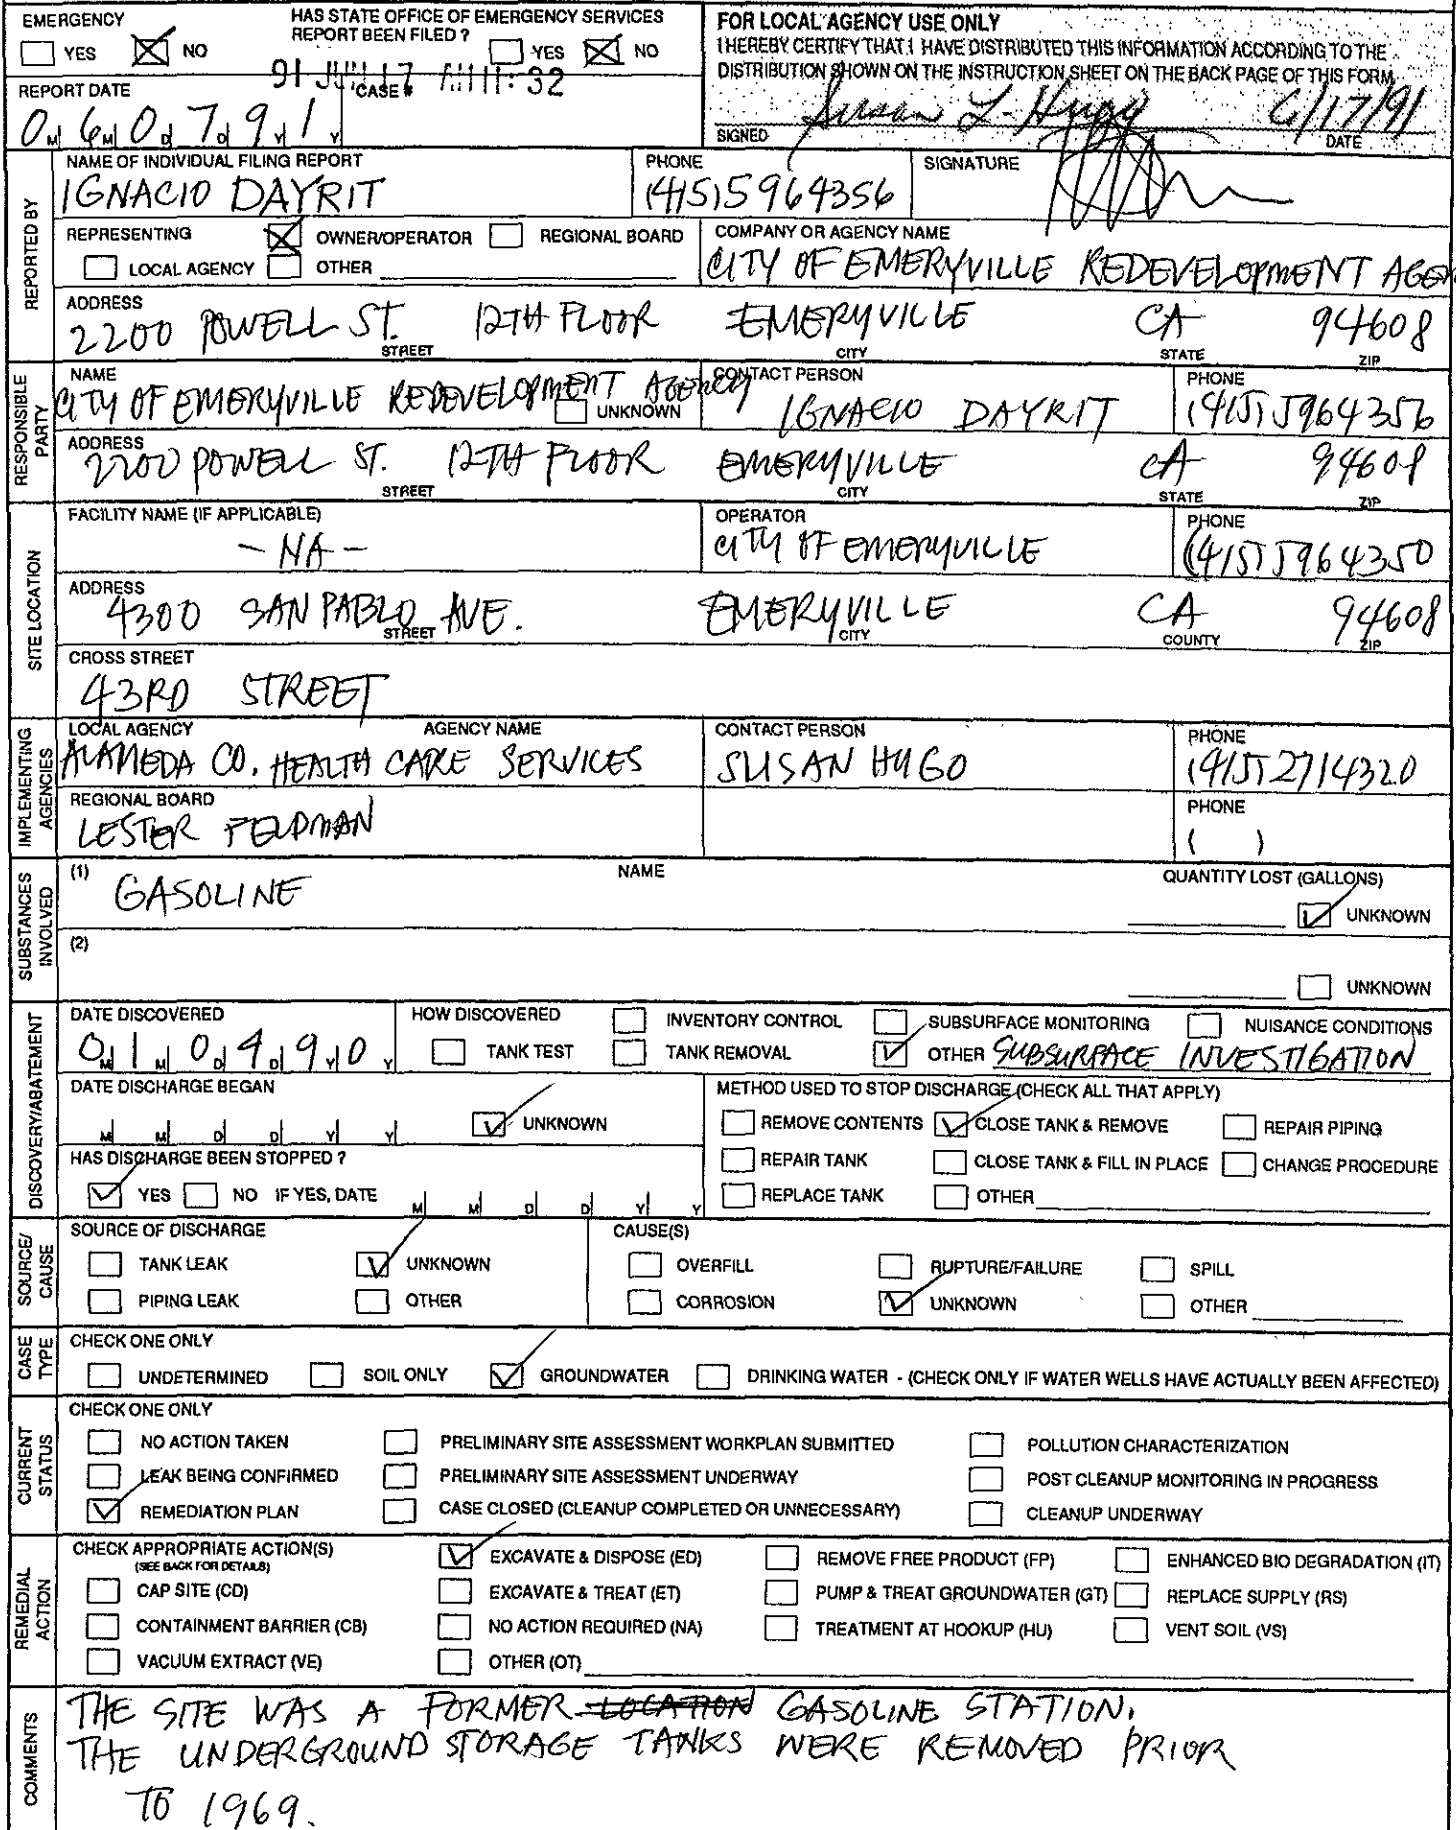 EMERGENCY
YES NO
HAS STATE OFFICE OF EMERGENCY SERVICES
REPORT BEEN FILED ? YES NO
91 JUN 17 AM 11:32
REPORT DATE CASE #
0 6 0 7 9 1
M M D D Y Y
FOR LOCAL AGENCY USE ONLY
I HEREBY CERTIFY THAT I HAVE DISTRIBUTED THIS INFORMATION ACCORDING TO THE
DISTRIBUTION SHOWN ON THE INSTRUCTION SHEET ON THE BACK PAGE OF THIS FORM.
Susan L. Hugo 6/17/91
SIGNED DATE
REPORTED BY
NAME OF INDIVIDUAL FILING REPORT PHONE SIGNATURE
IGNACIO DAYRIT (415) 5964356
REPRESENTING OWNER/OPERATOR REGIONAL BOARD COMPANY OR AGENCY NAME
LOCAL AGENCY OTHER CITY OF EMERYVILLE REDEVELOPMENT AGEN
ADDRESS
2200 POWELL ST. 12TH FLOOR EMERYVILLE CA 94608
STREET CITY STATE ZIP
RESPONSIBLE PARTY
NAME CONTACT PERSON PHONE
CITY OF EMERYVILLE REDEVELOPMENT AGENCY UNKNOWN IGNACIO DAYRIT (415) 5964356
ADDRESS
2200 POWELL ST. 12TH FLOOR EMERYVILLE CA 94608
STREET CITY STATE ZIP
SITE LOCATION
FACILITY NAME (IF APPLICABLE) OPERATOR PHONE
- NA - CITY OF EMERYVILLE (415) 5964350
ADDRESS
4300 SAN PABLO AVE. EMERYVILLE CA 94608
STREET CITY COUNTY ZIP
CROSS STREET
43RD STREET
IMPLEMENTING AGENCIES
LOCAL AGENCY AGENCY NAME CONTACT PERSON PHONE
ALAMEDA CO. HEALTH CARE SERVICES SUSAN HUGO (415) 2714320
REGIONAL BOARD PHONE
LESTER FELDMAN ( )
SUBSTANCES INVOLVED
(1) NAME QUANTITY LOST (GALLONS)
GASOLINE UNKNOWN
(2)
UNKNOWN
DISCOVERY/ABATEMENT
DATE DISCOVERED HOW DISCOVERED INVENTORY CONTROL SUBSURFACE MONITORING NUISANCE CONDITIONS
0 1 0 4 9 0 TANK TEST TANK REMOVAL OTHER SUBSURFACE INVESTIGATION
M M D D Y Y
DATE DISCHARGE BEGAN
M M D D Y Y UNKNOWN
METHOD USED TO STOP DISCHARGE (CHECK ALL THAT APPLY)
REMOVE CONTENTS CLOSE TANK & REMOVE REPAIR PIPING
HAS DISCHARGE BEEN STOPPED ?
YES NO IF YES, DATE M M D D Y Y
REPAIR TANK CLOSE TANK & FILL IN PLACE CHANGE PROCEDURE
REPLACE TANK OTHER
SOURCE/ CAUSE
SOURCE OF DISCHARGE CAUSE(S)
TANK LEAK UNKNOWN OVERFILL RUPTURE/FAILURE SPILL
PIPING LEAK OTHER CORROSION UNKNOWN OTHER
CASE TYPE
CHECK ONE ONLY
UNDETERMINED SOIL ONLY GROUNDWATER DRINKING WATER - (CHECK ONLY IF WATER WELLS HAVE ACTUALLY BEEN AFFECTED)
CURRENT STATUS
CHECK ONE ONLY
NO ACTION TAKEN PRELIMINARY SITE ASSESSMENT WORKPLAN SUBMITTED POLLUTION CHARACTERIZATION
LEAK BEING CONFIRMED PRELIMINARY SITE ASSESSMENT UNDERWAY POST CLEANUP MONITORING IN PROGRESS
REMEDIATION PLAN CASE CLOSED (CLEANUP COMPLETED OR UNNECESSARY) CLEANUP UNDERWAY
REMEDIAL ACTION
CHECK APPROPRIATE ACTION(S) EXCAVATE & DISPOSE (ED) REMOVE FREE PRODUCT (FP) ENHANCED BIO DEGRADATION (IT)
(SEE BACK FOR DETAILS)
CAP SITE (CD) EXCAVATE & TREAT (ET) PUMP & TREAT GROUNDWATER (GT) REPLACE SUPPLY (RS)
CONTAINMENT BARRIER (CB) NO ACTION REQUIRED (NA) TREATMENT AT HOOKUP (HU) VENT SOIL (VS)
VACUUM EXTRACT (VE) OTHER (OT)
COMMENTS
THE SITE WAS A FORMER LOCATION GASOLINE STATION.
THE UNDERGROUND STORAGE TANKS WERE REMOVED PRIOR
TO 1969.